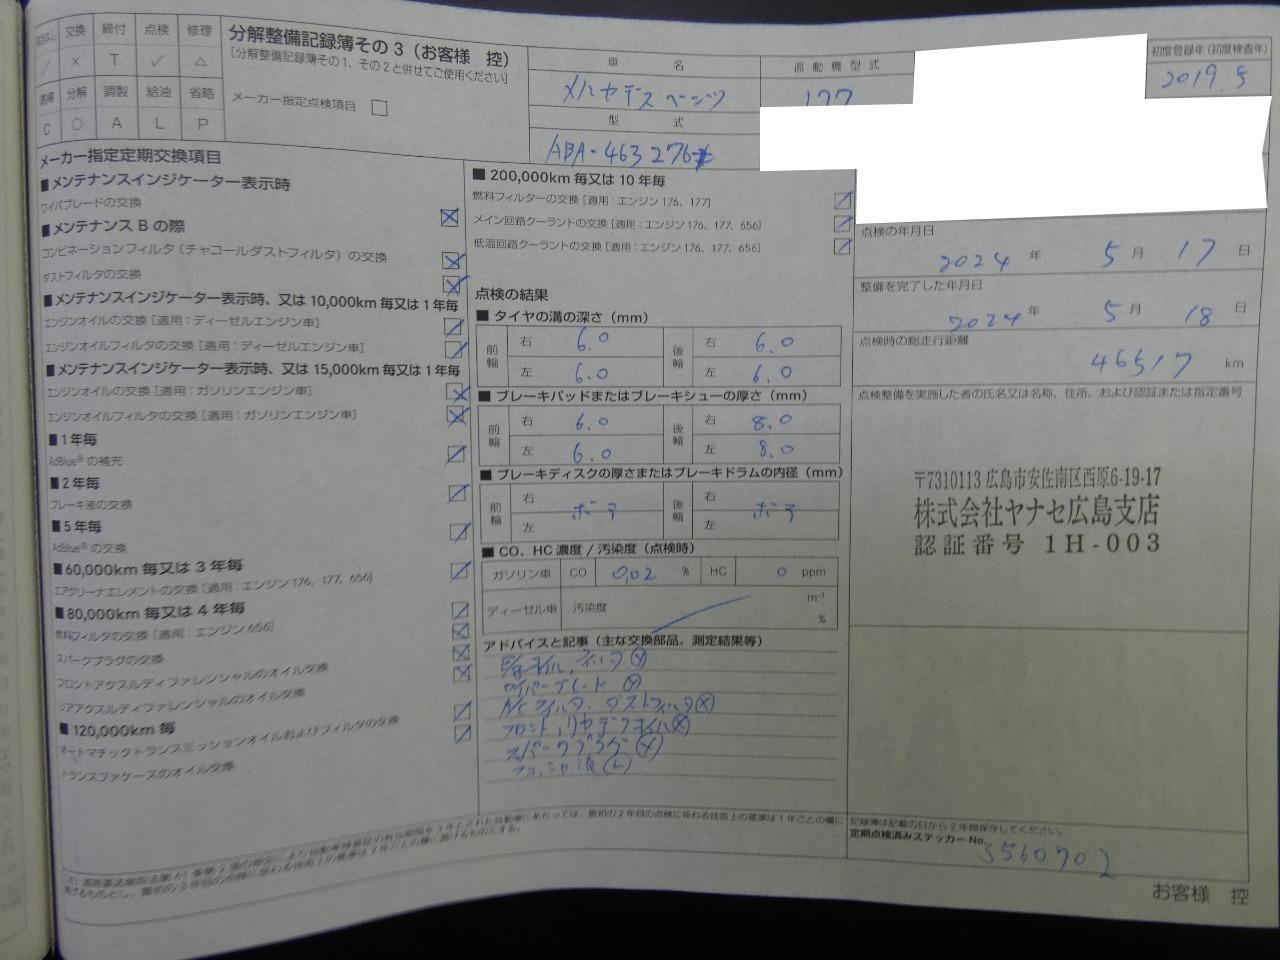 交換 締付 点検 修理
/ × T ✓ △
清掃 分解 調製 給油 省略
C ○ A L P
分解整備記録簿その3（お客様 控）
［分解整備記録簿その1、その2と併せてご使用ください］
メーカー指定点検項目 □
車名
メルセデスベンツ
型式
ABA-463276
原動機型式
177
初度登録年（初度検査年）
2019.5
メーカー指定定期交換項目
■メンテナンスインジケーター表示時
ワイパブレードの交換
■メンテナンスBの際
コンビネーションフィルタ（チャコールダストフィルタ）の交換
ダストフィルタの交換
■メンテナンスインジケーター表示時、又は10,000km毎又は1年毎
エンジンオイルの交換［適用：ディーゼルエンジン車］
エンジンオイルフィルタの交換［適用：ディーゼルエンジン車］
■メンテナンスインジケーター表示時、又は15,000km毎又は1年毎
エンジンオイルの交換［適用：ガソリンエンジン車］
エンジンオイルフィルタの交換［適用：ガソリンエンジン車］
■1年毎
AdBlue®の補充
■2年毎
ブレーキ液の交換
■5年毎
AdBlue®の交換
■60,000km毎又は3年毎
エアクリーナエレメントの交換［適用：エンジン176、177、656］
■80,000km毎又は4年毎
燃料フィルタの交換［適用：エンジン656］
スパークプラグの交換
フロントアクスルディファレンシャルのオイル交換
リアアクスルディファレンシャルのオイル交換
■120,000km毎
オートマチックトランスミッションオイルおよびフィルタの交換
トランスファケースのオイル交換
■200,000km毎又は10年毎
燃料フィルターの交換［適用：エンジン176、177］
メイン回路クーラントの交換［適用：エンジン176、177、656］
低温回路クーラントの交換［適用：エンジン176、177、656］
点検の結果
■タイヤの溝の深さ（mm）
前輪 右 6.0 後輪 右 6.0
左 6.0 左 6.0
■ブレーキパッドまたはブレーキシューの厚さ（mm）
前輪 右 6.0 後輪 右 8.0
左 6.0 左 8.0
■ブレーキディスクの厚さまたはブレーキドラムの内径（mm）
前輪 右 左 後輪 右 左
■CO、HC濃度/汚染度（点検時）
ガソリン車 CO 0.02 % HC 0 ppm
ディーゼル車 汚染度 m⁻¹
%
アドバイスと記事（主な交換部品、測定結果等）
ワイパーブレード ⓧ
A/Cフィルタ.ダストフィルタⓧ
フロント,リヤデフオイルⓧ
スパークプラグⓧ
点検の年月日
2024年 5月 17日
整備を完了した年月日
2024年 5月 18日
点検時の総走行距離
46517 km
点検整備を実施した者の氏名又は名称、住所、および認証または指定番号
〒7310113 広島市安佐南区西原6-19-17
株式会社ヤナセ広島支店
認証番号 1H-003
記録簿は記載の日から2年間保存してください。
定期点検済みステッカーNo.
5560702
お客様 控